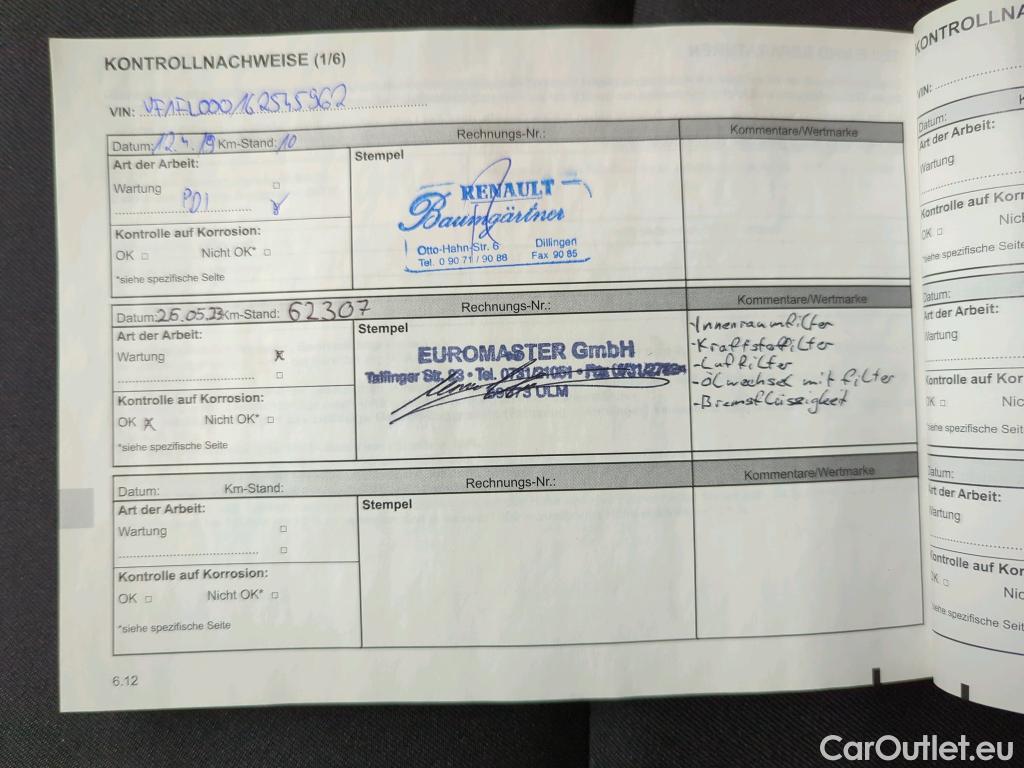 KONTROLLNACHWEISE (1/6)
VIN: VF1FL000162545962
Datum: 12.4.19 Km-Stand: 10 Rechnungs-Nr.: Kommentare/Wertmarke
Art der Arbeit: Stempel
Wartung
PDI
RENAULT
Baumgärtner
Otto-Hahn-Str. 6 Dillingen
Tel. 0 90 71 / 90 88 Fax 90 85
Kontrolle auf Korrosion:
OK Nicht OK*
*siehe spezifische Seite
Datum: 26.05.23 Km-Stand: 62307 Rechnungs-Nr.: Kommentare/Wertmarke
Art der Arbeit: Stempel
Wartung x
EUROMASTER GmbH
Tel. 0731/21061
ULM
-Innenraumfilter
-Kraftstoffilter
-Luftfilter
-Ölwechsel mit filter
-Bremsflüssigkeit
Kontrolle auf Korrosion:
OK x Nicht OK*
*siehe spezifische Seite
Datum: Km-Stand: Rechnungs-Nr.: Kommentare/Wertmarke
Art der Arbeit: Stempel
Wartung
Kontrolle auf Korrosion:
OK Nicht OK*
*siehe spezifische Seite
6.12
KONTROLLNA
VIN:
Datum:
Art der Arbeit:
Wartung
Kontrolle auf Korr
OK Nich
siehe spezifische Seite
Datum:
Art der Arbeit:
Wartung
Kontrolle auf Kor
OK Nic
siehe spezifische Seite
Datum:
Art der Arbeit:
Wartung
Kontrolle auf Kor
OK Nic
siehe spezifische Seit
CarOutlet.eu